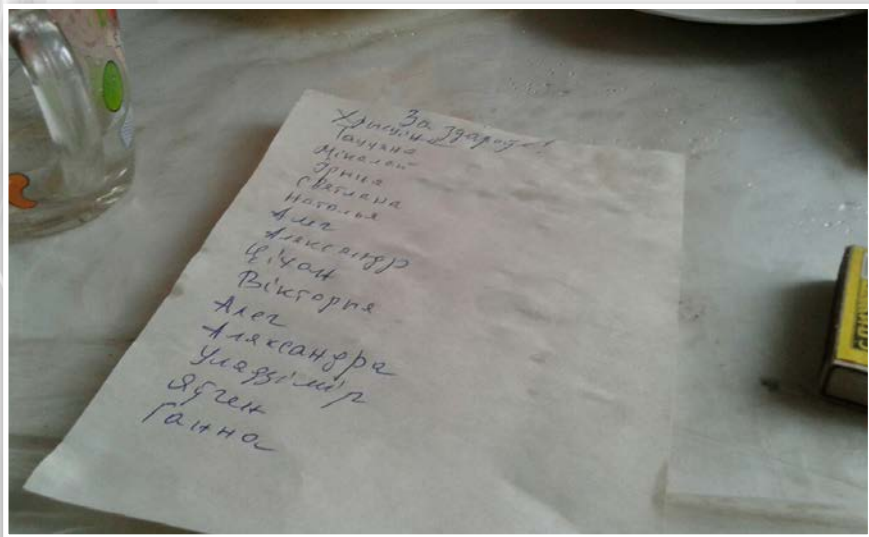 За здароўе!
Хрысціна
Таццяна
Мікалай
Ірына
Святлана
Наталья
Алег
Аляксандр
Ціхан
Вікторыя
Алег
Аляксандра
Уладзімір
Яўген
Ганна